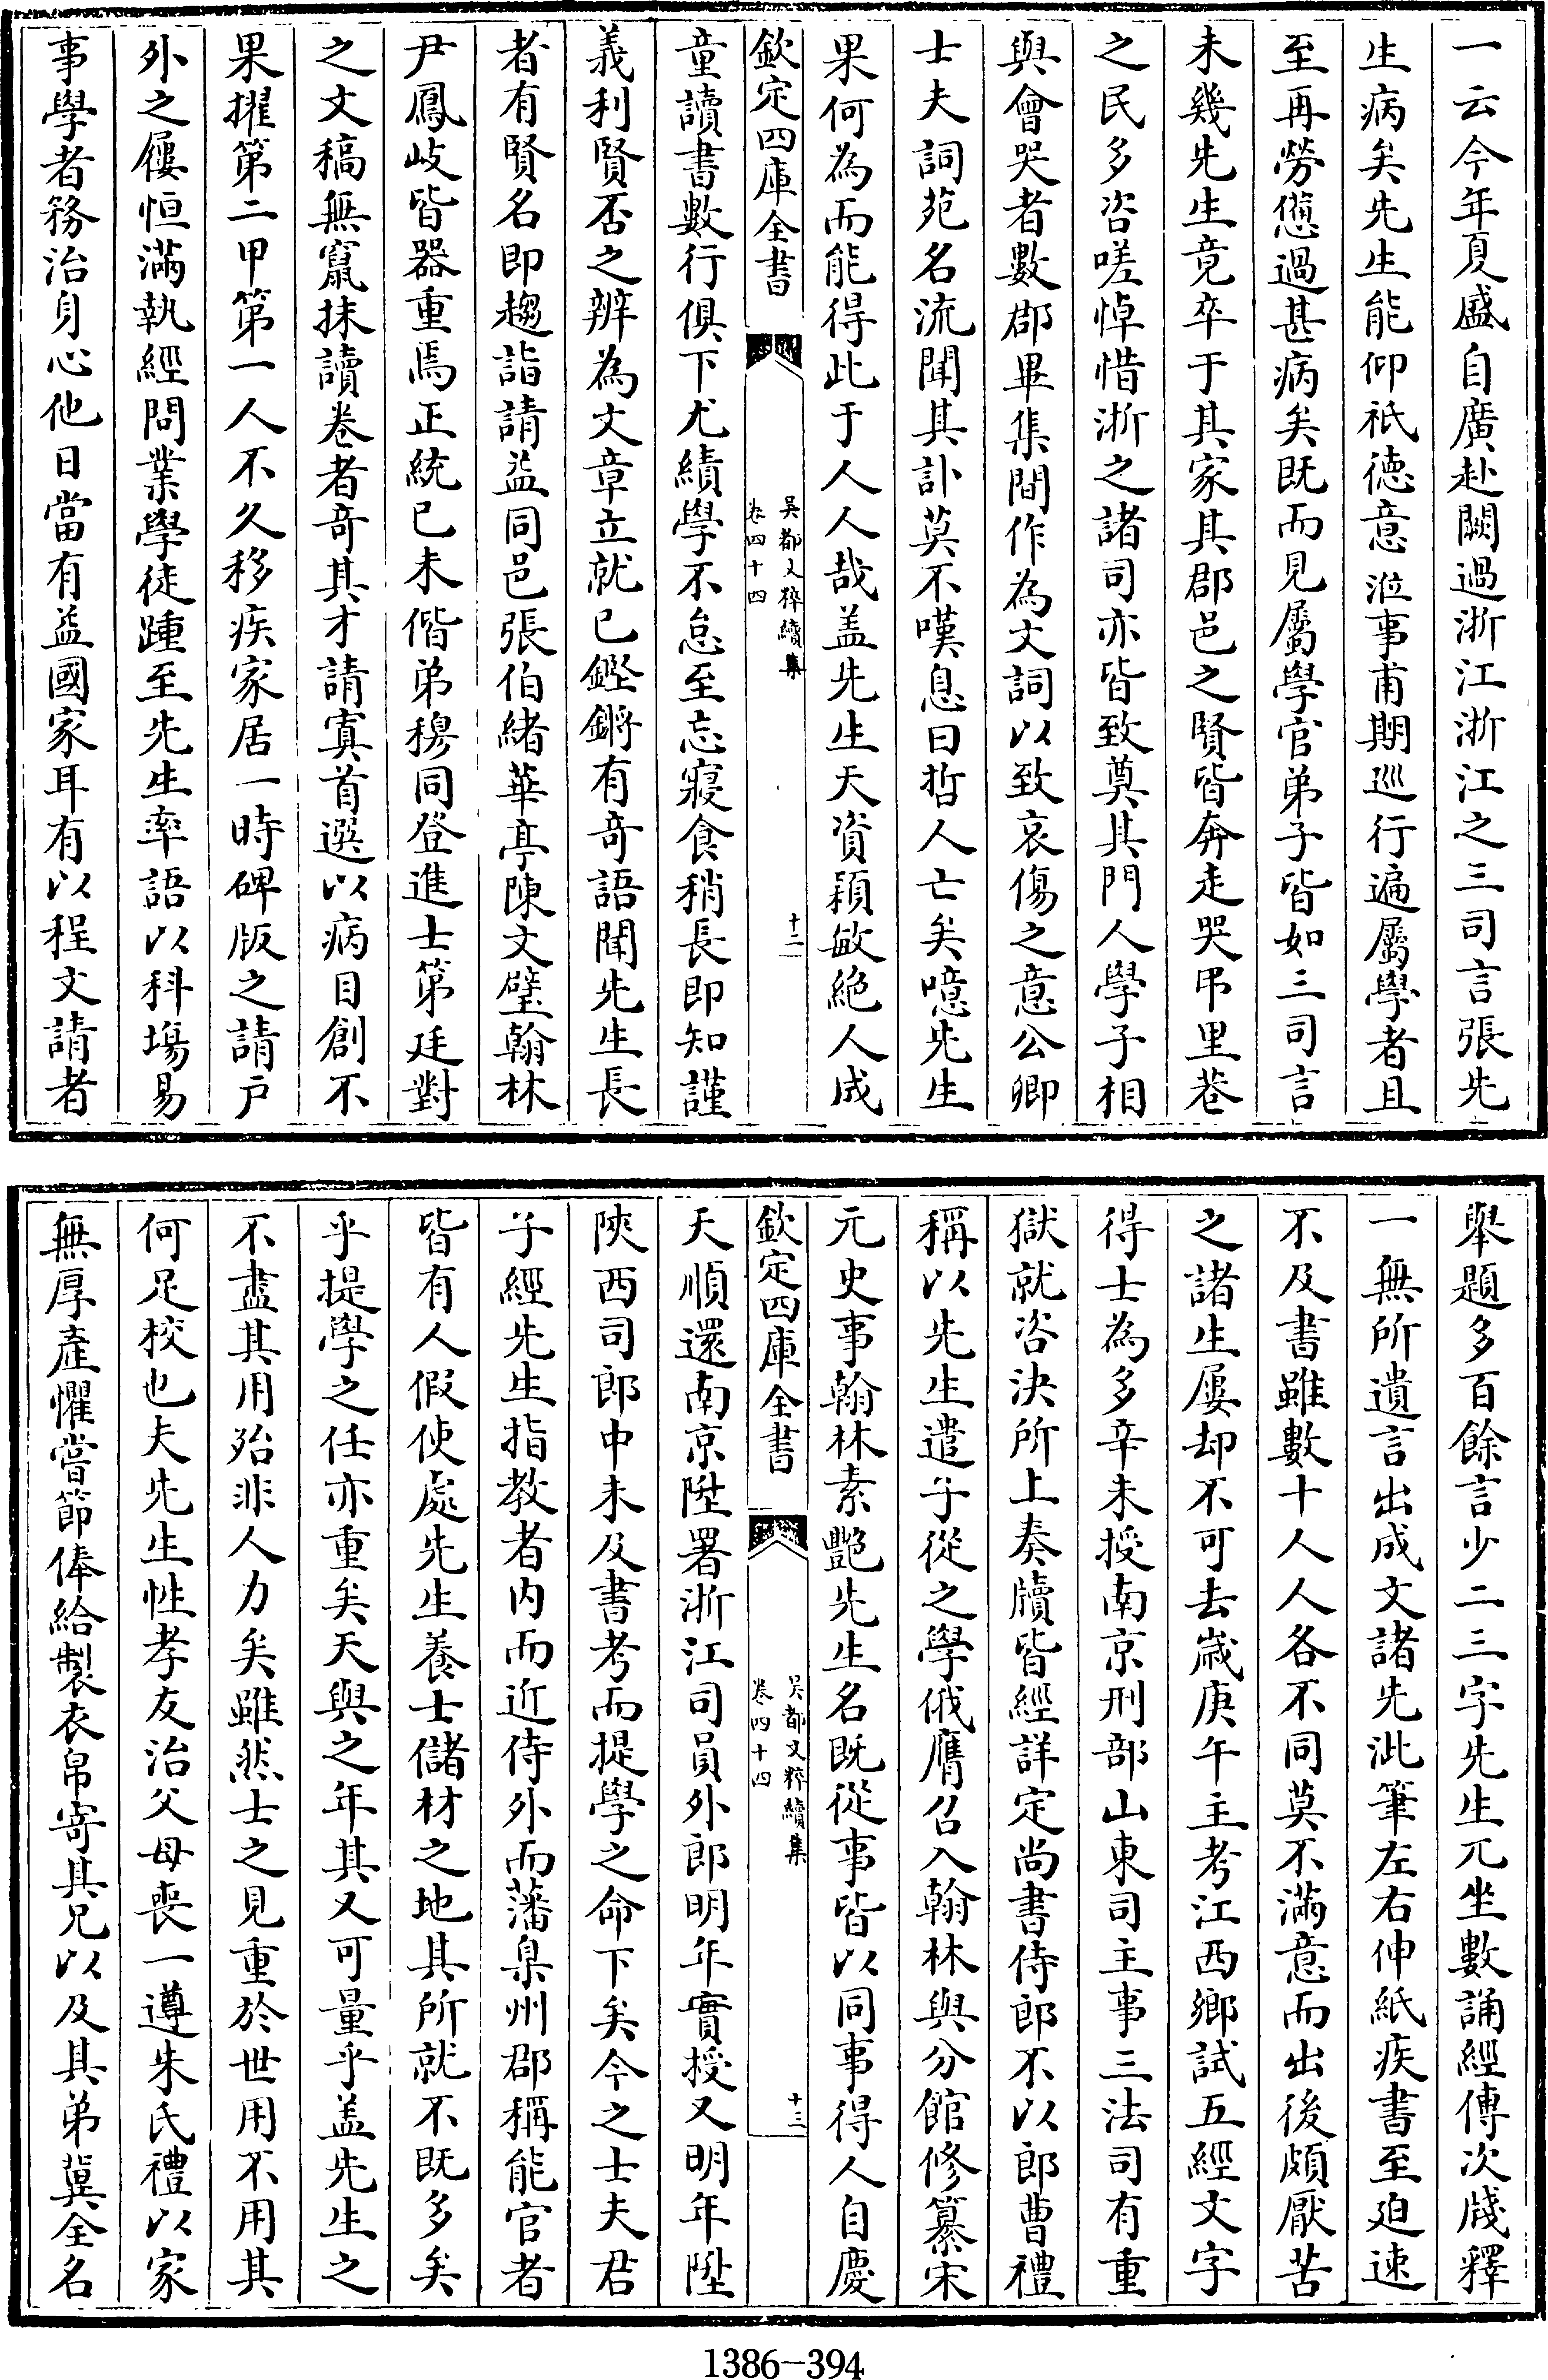 一云今年夏盛自廣赴闕過浙江浙江之三司言張先
生病矣先生能仰祇徳意涖事甫期巡行遍屬學者且
至再勞憊過甚病矣既而見屬學官弟子皆如三司言
未幾先生竟卒于其家其郡邑之賢皆奔走哭弔里巷
之民多咨嗟悼惜浙之諸司亦皆致奠其門人學子相
與會哭者數郡畢集間作為文詞以致哀傷之意公卿
士夫詞苑名流聞其訃莫不嘆息曰哲人亡矣噫先生
果何為而能得此于人人哉盖先生天資穎敏絶人成
欽定四庫全書
吳都文粹續集
卷四十四
十二
童讀書數行俱下尤績學不怠至忘寢食稍長即知謹
義利賢否之辨為文章立就已鏗鏘有奇語聞先生長
者有賢名即趨詣請益同邑張伯緒華亭陳文璧翰林
尹鳳岐皆器重焉正統已未偕弟穆同登進士第廷對
之文稿無竄抹讀卷者奇其才請寘首選以病目創不
果擢第二甲第一人不久移疾家居一時碑版之請户
外之屨恒滿執經問業學徒踵至先生率語以科塲易
事學者務治身心他日當有益國家耳有以程文請者
舉題多百餘言少二三字先生兀坐數誦經傳次牋釋
一無所遺言出成文諸先泚筆左右伸紙疾書至廹速
不及書雖數十人人各不同莫不滿意而出後頗厭苦
之諸生屢却不可去歳庚午主考江西鄉試五經文字
得士為多辛未授南京刑部山東司主事三法司有重
獄就咨決所上奏牘皆經詳定尚書侍郎不以郎曹禮
稱以先生遣子從之學俄膺召入翰林與分館修纂宋
元史事翰林素艷先生名既從事皆以同事得人自慶
欽定四庫全書
吳都文粹續集
卷四十四
十三
天順還南京陞署浙江司員外郎明年實授又明年陞
陜西司郎中未及書考而提學之命下矣今之士夫君
子經先生指教者内而近侍外而藩臬州郡稱能官者
皆有人假使處先生養士儲材之地其所就不既多矣
乎提學之任亦重矣天與之年其又可量乎盖先生之
不盡其用殆非人力矣雖然士之見重於世用不用其
何足校也夫先生性孝友治父母喪一遵朱氏禮以家
無厚產懼嘗節俸給製衣帛寄其兄以及其弟冀全名
1386-394